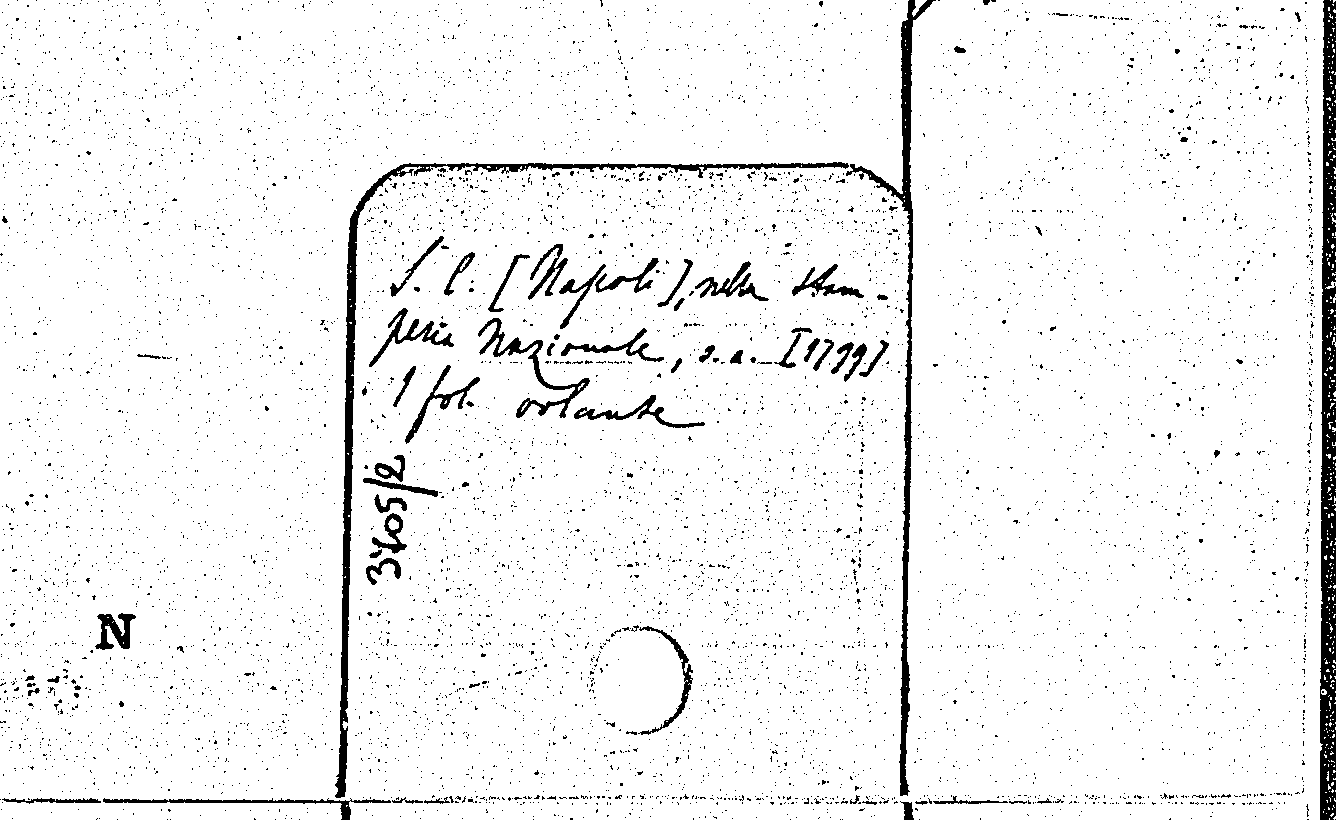 S. l. [Napoli], nella Stam-
peria Nazionale, s. a. [1799]
1 fol. volante
3405/2
N